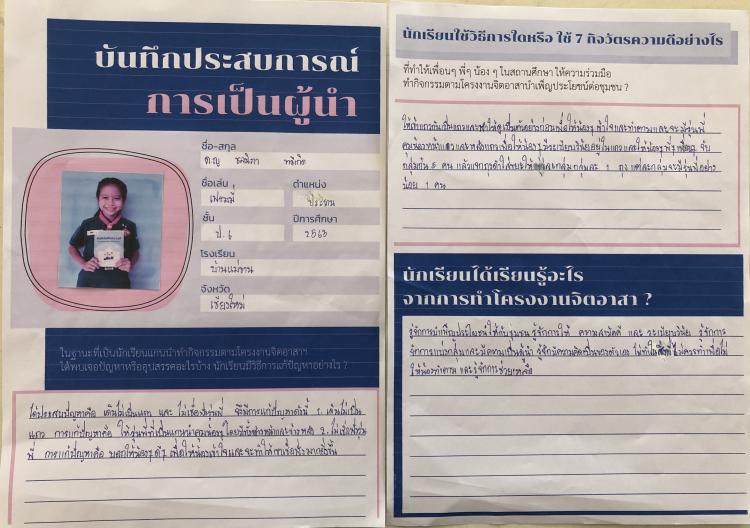 บันทึกประสบการณ์
การเป็นผู้นำ
ชื่อ-สกุล
ด.ญ.
ชื่อเล่น
ตำแหน่ง
ประธาน
ชั้น
ปีการศึกษา
ป.6
2563
โรงเรียน
จังหวัด
เชียงใหม่
ในฐานะที่เป็นนักเรียนแกนนำทำกิจกรรมตามโครงงานจิตอาสาฯ
ได้พบเจอปัญหาหรืออุปสรรคอะไรบ้าง นักเรียนมีวิธีการแก้ปัญหาอย่างไร ?
ได้ประสบปัญหาคือ เดินไม่เป็นแถว และ ไม่เชื่อฟังรุ่นพี่ จึงมีการแก้ปัญหาดังนี้ 1. เดินไม่เป็น
แถว การแก้ปัญหาคือ ให้รุ่นพี่ที่เป็นแกนนำคุมน้องๆ โดยมีทั้งข้างหน้าและข้างหลัง 2. ไม่เชื่อฟังรุ่น
พี่ การแก้ปัญหาคือ บอกให้น้องๆ ดีๆ เพื่อให้น้องเข้าใจและจะทำให้เขาเชื่อฟังมากยิ่งขึ้น
นักเรียนใช้วิธีการใดหรือ ใช้ 7 กิจวัตรความดีอย่างไร
ที่ทำให้เพื่อนๆ พี่ๆ น้อง ๆ ในสถานศึกษา ให้ความร่วมมือ
ทำกิจกรรมตามโครงงานจิตอาสาบำเพ็ญประโยชน์ต่อชุมชน ?
ให้น้องๆ และมีรุ่นพี่
กลุ่มกัน 5 คน กลุ่มละ 1 ถุง แต่ละกลุ่มจะมีรุ่นพี่อย่าง
น้อย 1 คน
นักเรียนได้เรียนรู้อะไร
จากการทำโครงงานจิตอาสา ?
รู้จักการบำเพ็ญประโยชน์ให้กับชุมชน รู้จักการให้ ความสามัคคี และ ระเบียบวินัย รู้จักการ
รู้จักการแบ่งกลุ่มและมีความเป็นผู้นำ รู้จักมีความคิดเป็นของตัวเอง ไม่ทำในสิ่งที่ไม่ควรทำเพื่อไม่
ให้น้องทำตาม และรู้จักการช่วยเหลือ